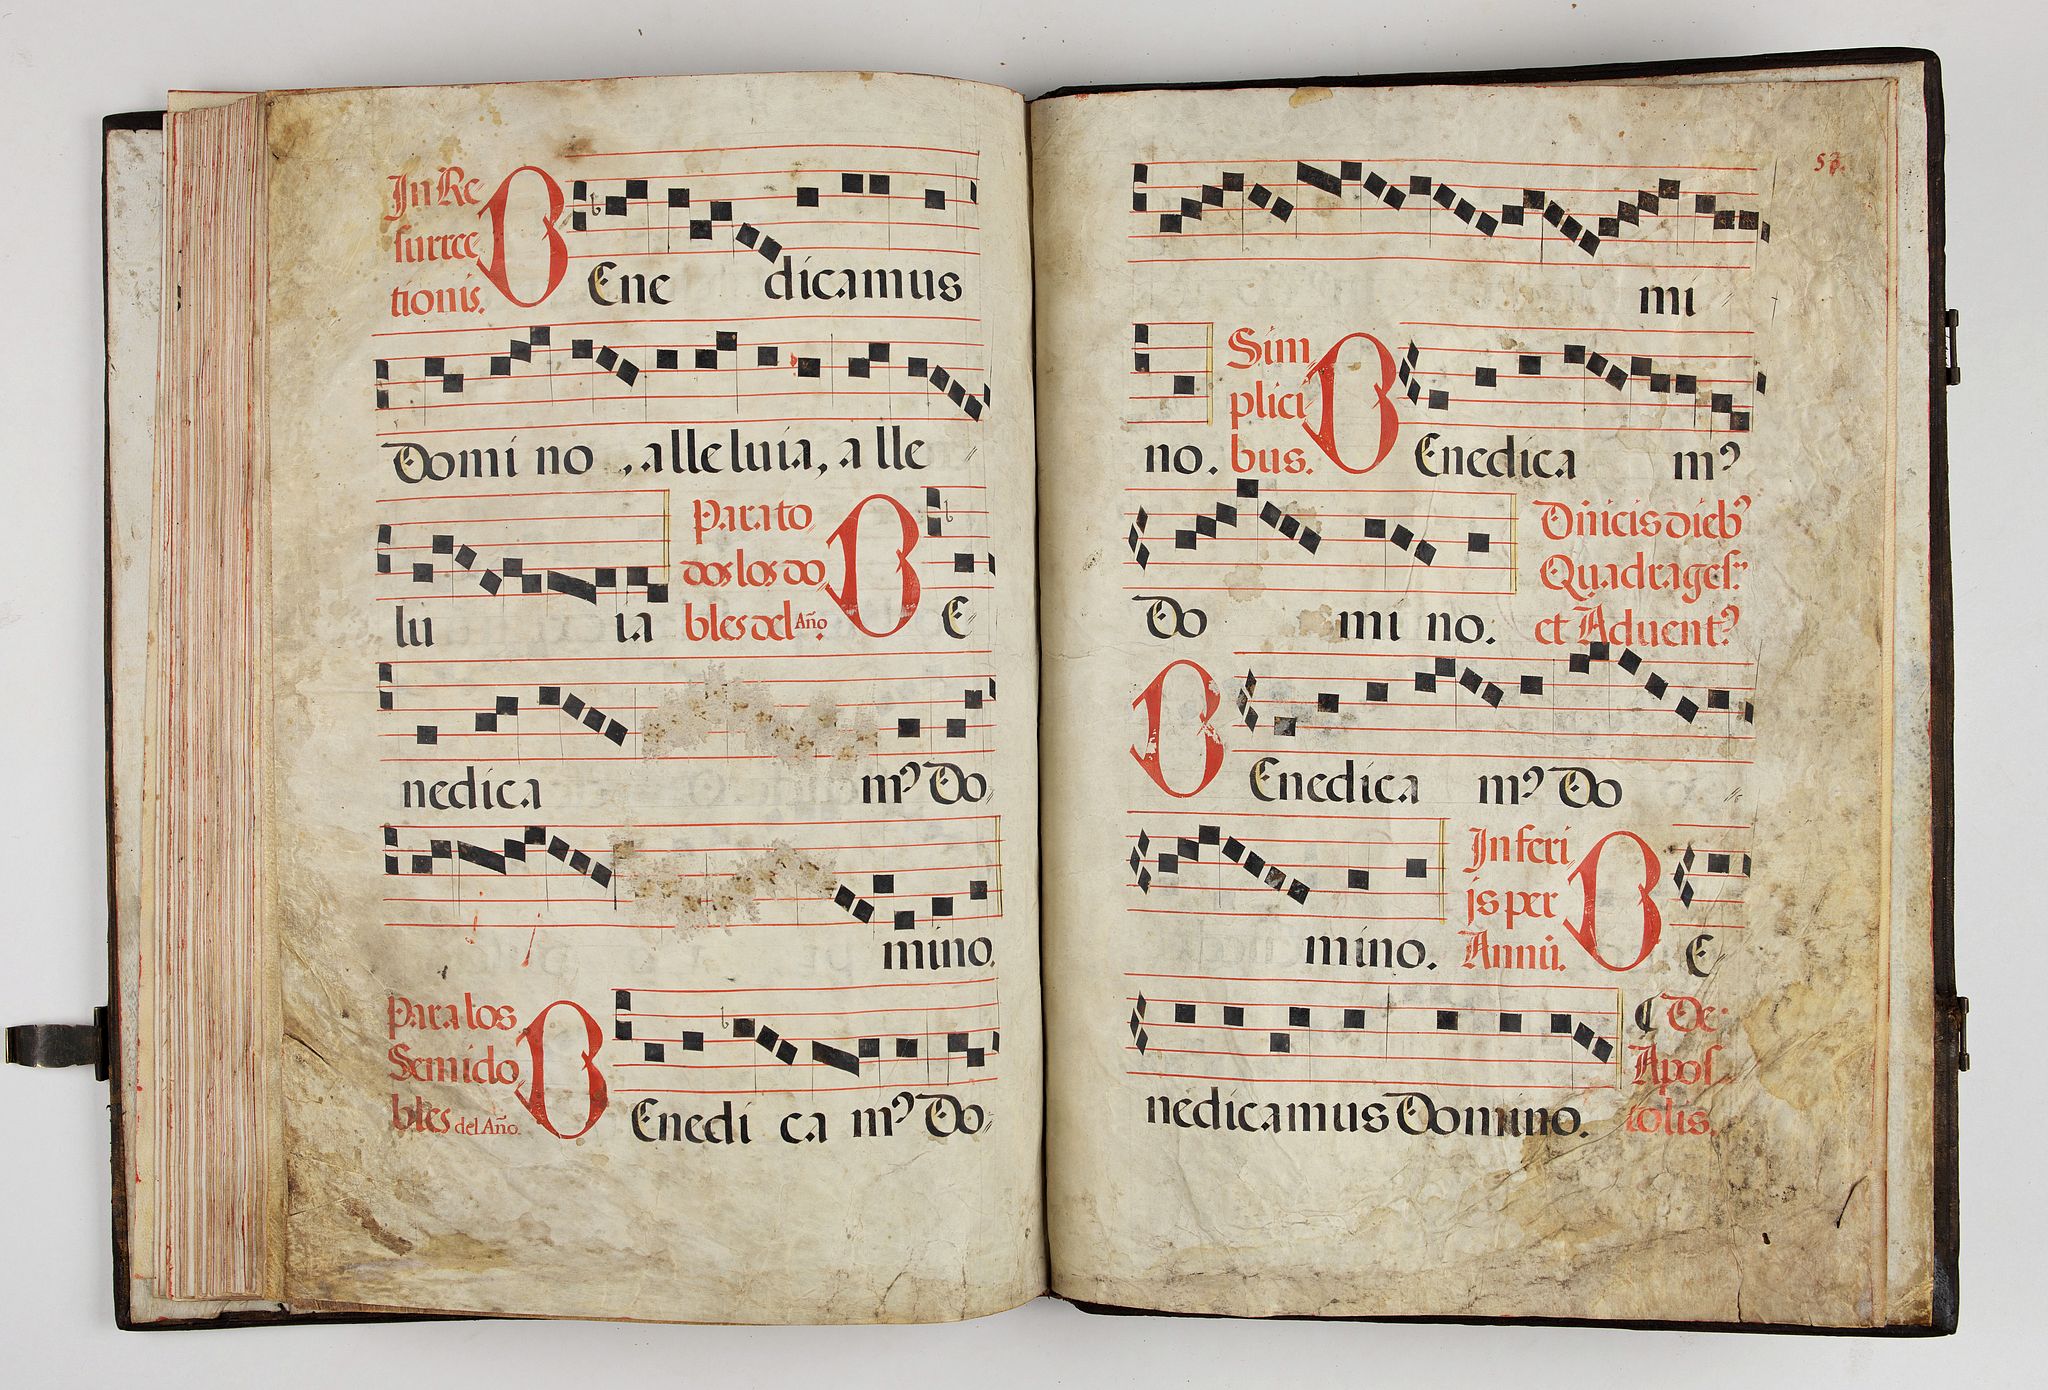 In Re
surrec
tionis.
BEne dicamus
Domi no, alleluia, alle
lu ia
Para to
dos los do
bles del Año.
B E
nedica m⁹ Do
mino.
Para los
Semido
bles del Año.
BEnedi ca m⁹ Do
58.
mi
no.
Sim
plici
bus.
BEnedica m⁹
Do mi no.
Dn̄icis dieb⁹
Quadrages:
et Aduent⁹
BEnedica m⁹ Do
mino.
In feri
js per
Annū.
B E
nedicamus Domino.
De
Apos
tolis.